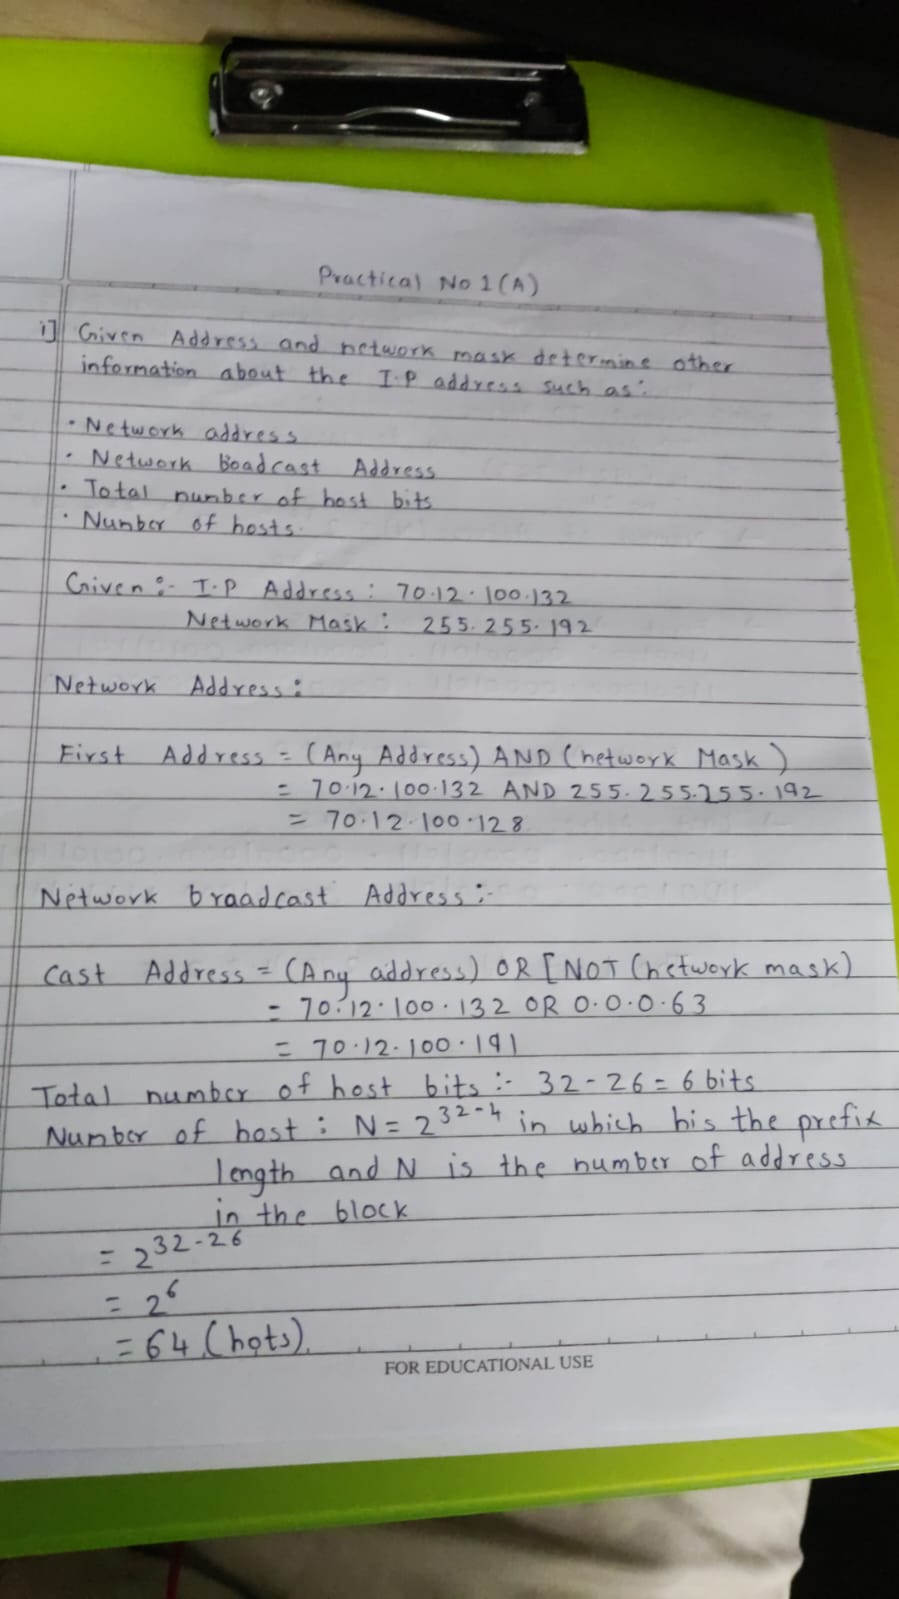 Practical No 1 (A)
i] Given Address and network mask determine other
information about the I.P address such as:
• Network address
• Network Boadcast Address
• Total number of host bits
• Nunber of hosts.
Given :- I.P Address : 70.12.100.132
Network Mask : 255.255.192
Network Address :
First Address = (Any Address) AND (network Mask)
= 70.12.100.132 AND 255.255.255.192
= 70.12.100.128
Network broadcast Address :-
Cast Address = (Any address) OR [NOT (network mask)
= 70.12.100.132 OR 0.0.0.63
= 70.12.100.191
Total number of host bits :- 32-26 = 6 bits
Number of host : N = 2^32-4 in which his the prefix
length and N is the number of address
in the block
= 2^32-26
= 2^6
= 64 (hots).
FOR EDUCATIONAL USE